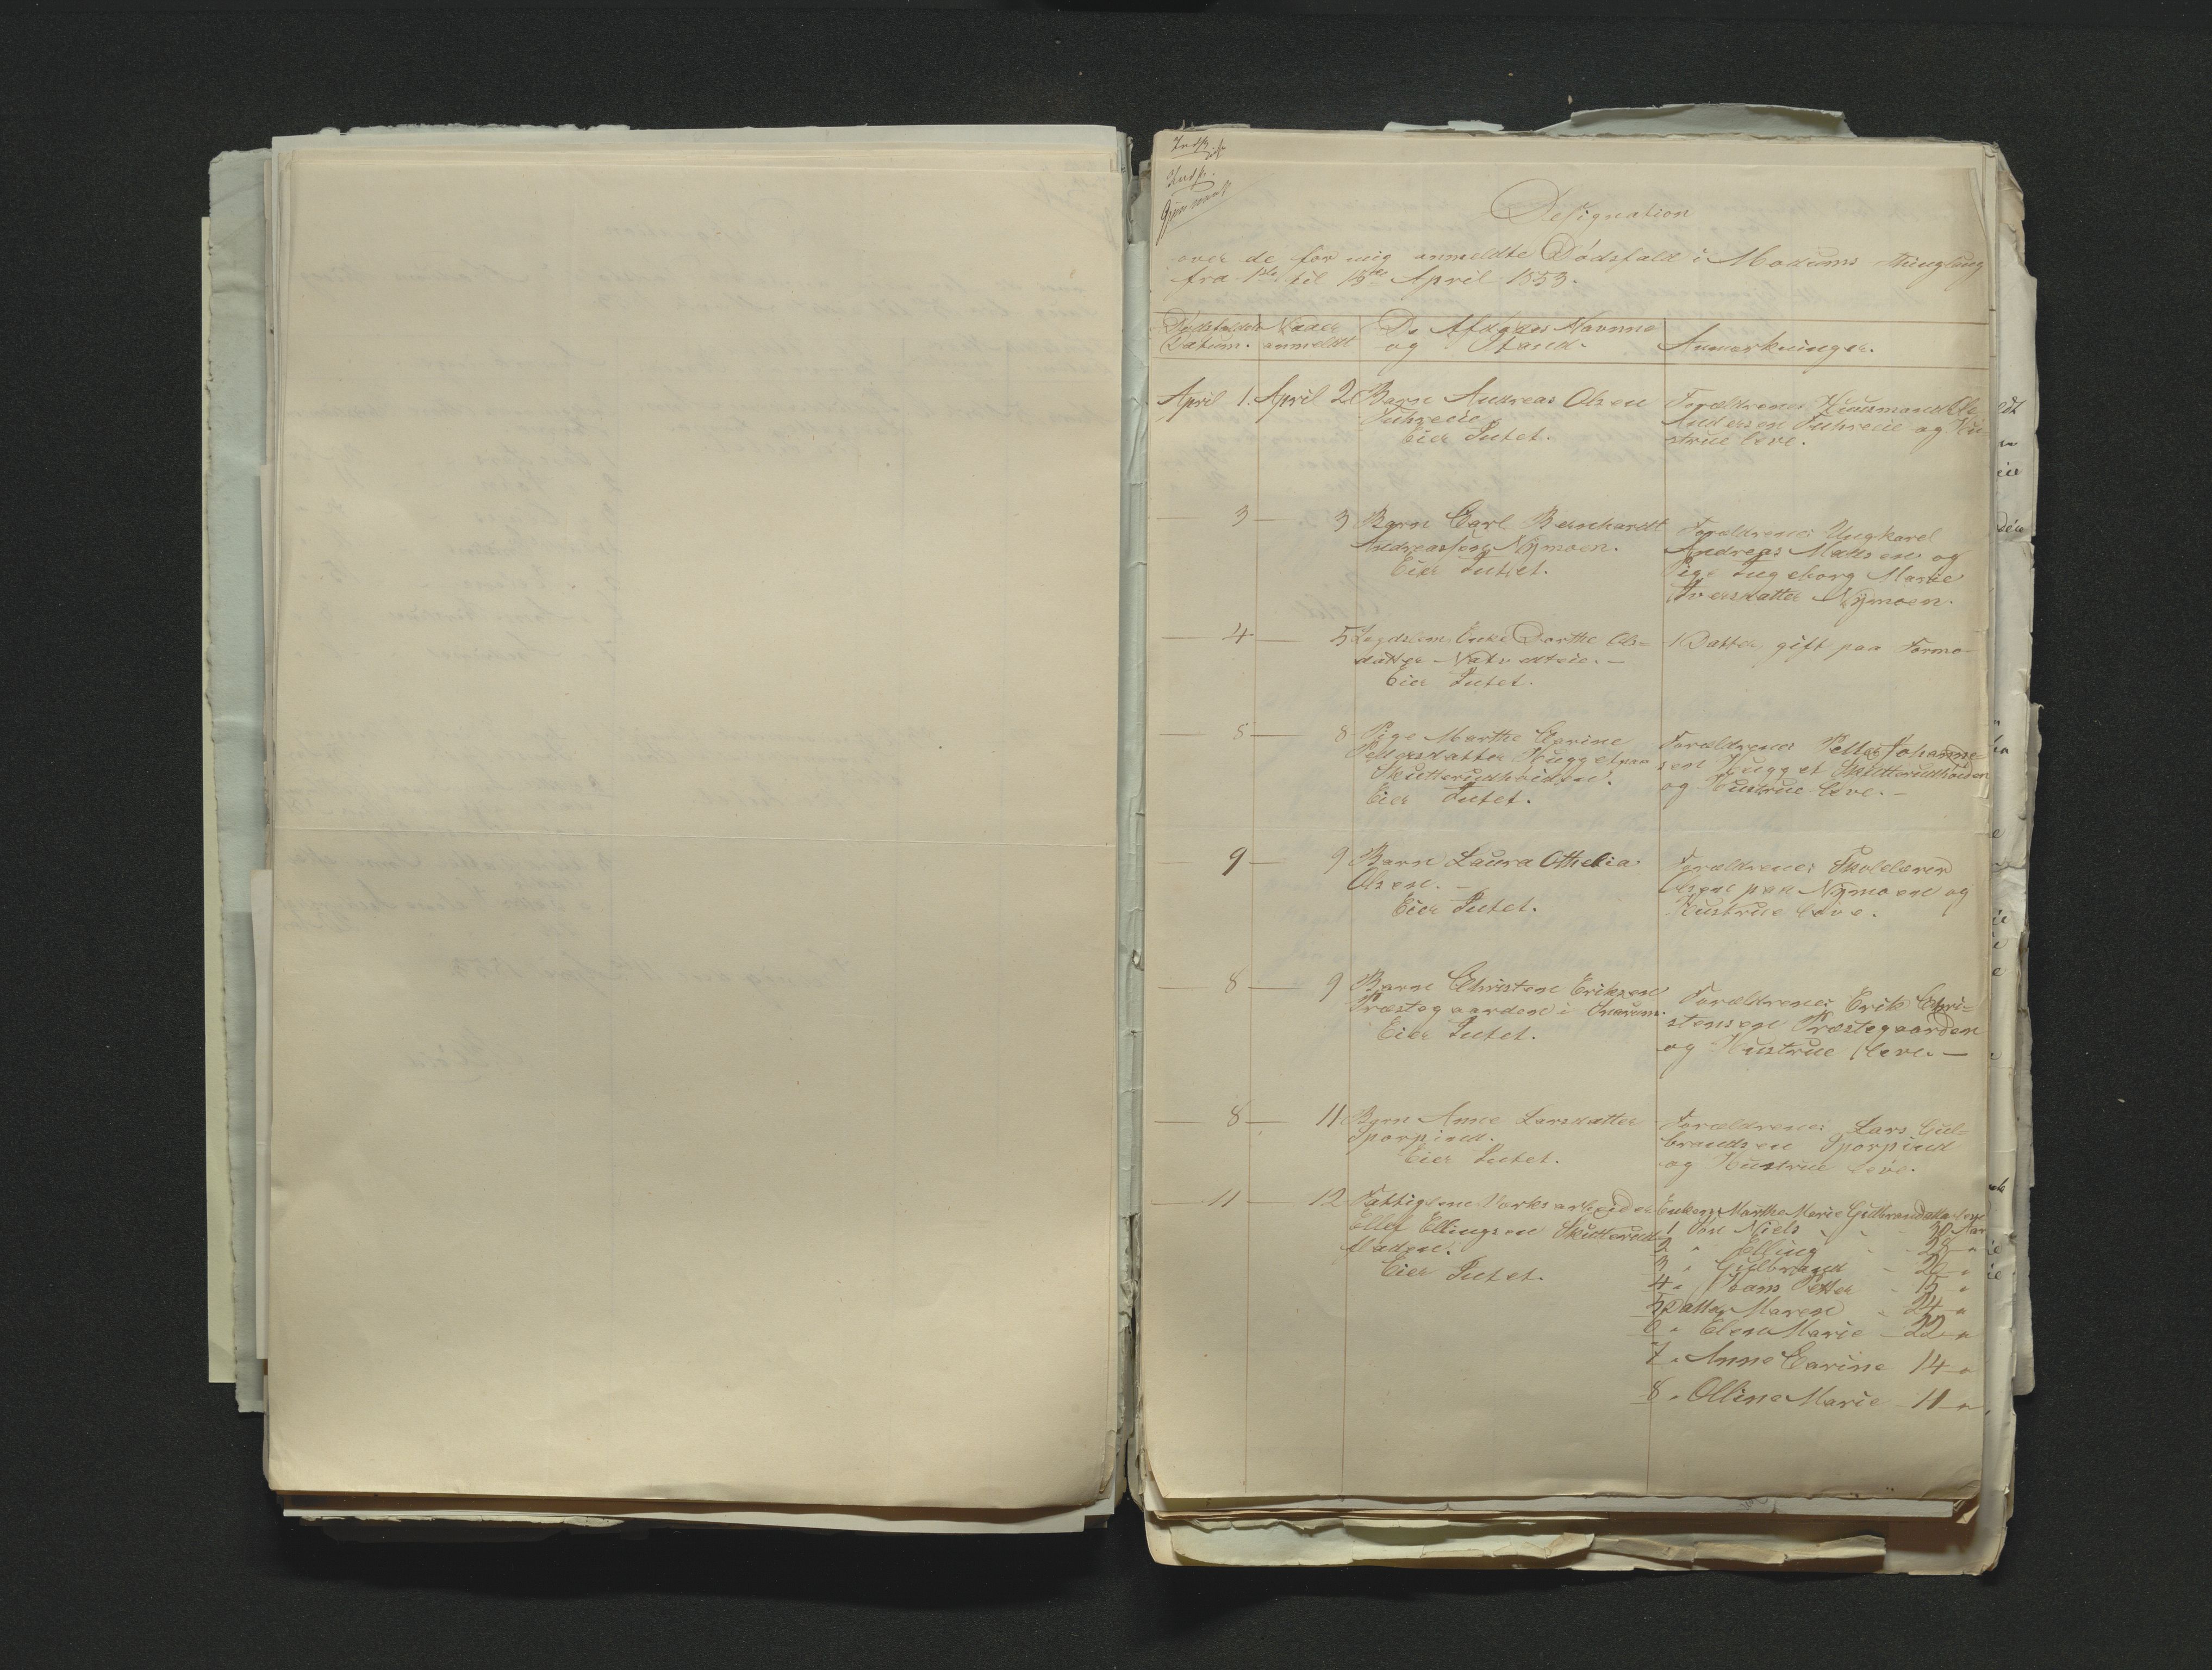 Designation
over de for mig anmeldte Dødsfald i Modums Thinglaug
fra 1ste til 15de April 1853.
Dødsfaldets
Datum.
Naar
anmeldt
De Afdødes Navne
og Stand.
Anmærkninger.
April 1. April 2. Barn Andreas Olsen
Eier Intet.
Forældrene: Huusmand Ole
Andersen og Hu-
strue leve.
3 3 Barn Carl Bernhardt
Andreassen Nÿmoen.
Eier Intet.
Forældrene: Ungkarl
Andreas Madsen og
Pige Ingeborg Marie
Iversdatter Nÿmoen.
4 5 Lægdslem Enke Dorthe Ols=
datter
Eier Intet.
1 Datter, gift paa
5 8 Pige Marthe Carine
Pettersdatter Hugget paa
Skutterudhøiden.
Eier Intet.
Forældrene: Petter Johanne-
sen Hugget Skutterudhøiden
og Hustrue leve.
9 9 Barn Laura Othelia
Olsen.
Eier Intet.
Forældrene: Skolelærer
Olsen paa Nÿmoen og
Hustrue leve.
8 9 Barn Christen Eriksen
Præstegaarden i Snarum.
Eier Intet.
Forældrene: Erik Chri=
stensen Præstegaarden
og Hustrue leve.
8 11 Barn Anne Larsdatter
Sporpind.
Eier Intet.
Forældrene: Lars Gul=
brandsen Sporpind
og Hustrue leve.
11 12 Fattiglem Værksarbeider
Ellef Ellingsen Skutterud-
fladen.
Eier Intet.
Enken: Marthe Marie Gulbrandsdatter leve
1 Søn Niels 30 Aar
2 " Elling 28 "
3 " Gulbrand 20 "
4 " Hans Petter 15 "
5 Datter Maren 24 "
6 " Elen Marie 22 "
7 " Anne Carine 14 "
8 " Olline Marie 11 "